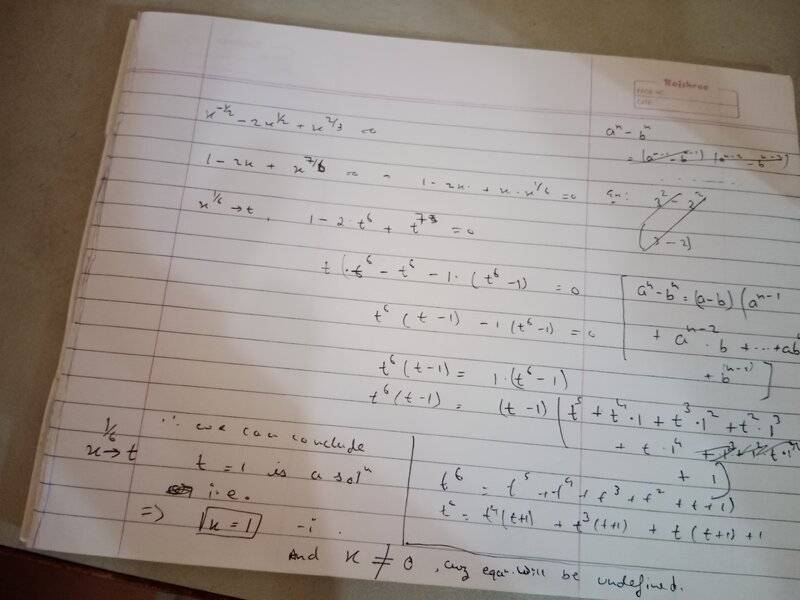 Rajshree
PAGE NO.
DATE
x^{-1/2} - 2x^{1/2} + x^{2/3} = 0
1 - 2x + x^{7/6} = 0 - 1 - 2x + x · x^{1/6} = 0
x^{1/6} → t, 1 - 2 · t^6 + t^7 = 0
t · t^6 - t^6 - 1 · (t^6 - 1) = 0
t^6 (t - 1) - 1 (t^6 - 1) = 0
t^6 (t - 1) = 1 · (t^6 - 1)
t^6 (t - 1) = (t - 1) ( t^5 + t^4 · 1 + t^3 · 1^2 + t^2 · 1^3
+ t · 1^4
+ 1 )
x^{1/6} → t
∴ we can conclude
t = 1 is a sol^n
i.e.
⇒ x = 1 - i .
t^6 = t^5 + t^4 + t^3 + t^2 + t + 1)
t^6 = t^4 (t+1) + t^3 (t+1) + t (t+1) + 1
And x ≠ 0 , cuz equn. will be undefined.
a^n - b^n
= (a^{n-1} - b^{n-1}) (a^{n-2} - b^{n-2})
en: 3^2 - 2^2
(3 - 2)
a^n - b^n = (a - b) ( a^{n-1}
+ a^{n-2} · b + ... + ab
+ b^{(n-1)} ]